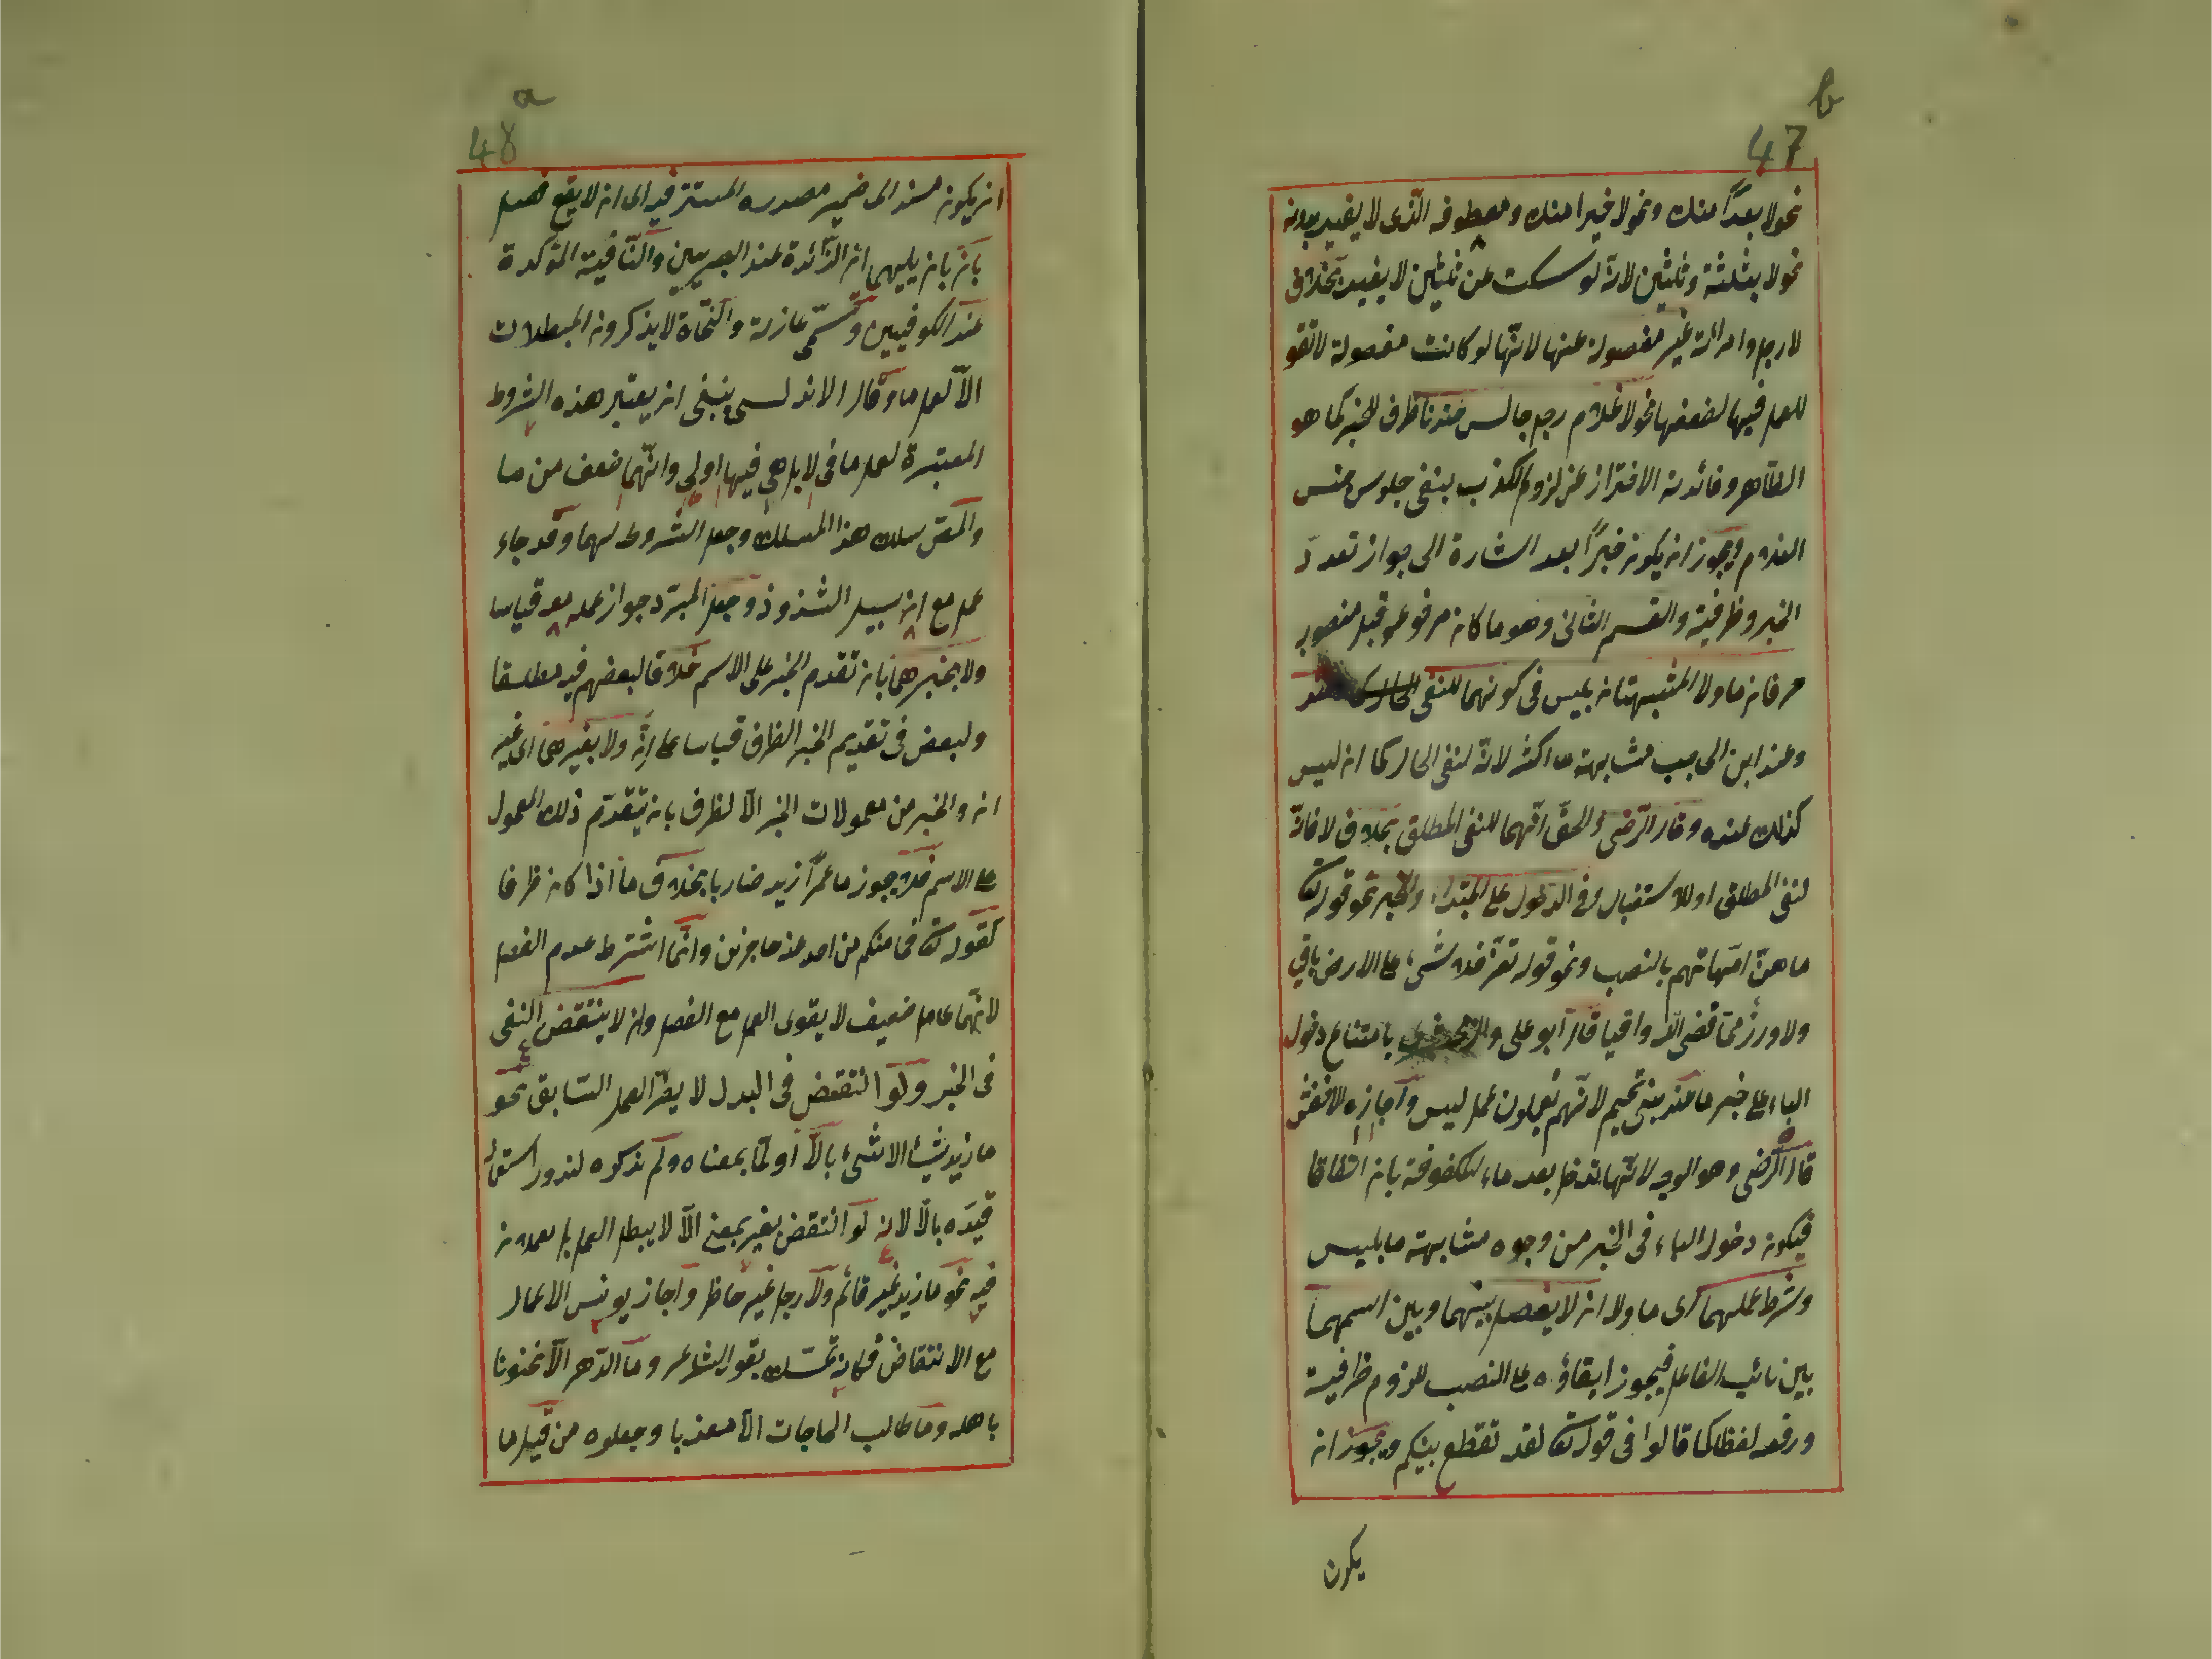 b
47
نحو لا بعدا منك ونحو لا خيرا منك ومعطوفه الذى لا يفيد بدونه
نحو لا بثلثة وثلثين لانه لو سكت عن ثلثين لا يفيد بخلاف
لا رجل وامرائة غير مفصولة عنها لانّها لو كانت مفصولة لا تقو
للعمل فيها لضعفها نحو لا غلام رجل جالس عندنا ظرف للخبر كما هو
الظّاهر وفائدته الاحتراز عن لزوم الكذب بنفى جلوس جنس
الغلام ويجوز ان يكون خبرًا بعد اشارة الى جواز تعدد
الخبر وظرفية والقسم الثانى وهو ما كان مرفوعه قبل منصوبه
حرفان ما ولا المشبهتان بليس فى كونهما للنفى
وعند ابن الحاجب مشابهة ما اكثر لانه لنفى الحال كما ان ليس
كذلك عنده وقال الرّضى والحقّ انّهما للنفى المطلق بخلاف لا فانّه
لنفى المطلق او للاستقبال وفى الدخول على المبتداء والخبر نحو قوله تعالى
ما هنّ امّهاتهم بالنصب ونحو قوله تعزّ فلا شىء على الارض باقيا
ولا وزر ممّا قضى الله واقيا قال ابو على والزمخشرى بامتناع دخول
الباء على خبر ما عند بنى تميم لانّهم لا يعملون عمل ليس واجازه الاخفش
قال الرّضى وهو الوجه لانّها تدخل بعد ماء المكفوفة بان اتفاقا
فيكون دخول الباء فى الخبر من وجوه مشابهة ما بليس
وشرط عملهما اى ما ولا ان لا يفصل بينهما وبين اسمهما
بين نائب الفاعل فيجوز ابقاؤه على النصب للزوم ظرفية
ورفعه لفظا كما قالوا فى قوله تعالى لقد تقطع بينكم ويجوز ان
يكون
a
48
ان يكون مسند الى ضمير مصدره المستتر فيه اى ان لا يقع فصل
بان بان يليهما ان الزّائدة عند البصريين والنّافية المؤكدة
عند الكوفيين وتسمّى عازلة والنّحاة لا يذكرون المبطلات
الّا لعمل ما وقال الاندلسى ينبغى ان يعتبر هذه الشروط
المعتبرة لعمل ما فى لا بل هى فيها اولى وانّهما اضعف من ما
والمص سلك هذا المسلك وجعل الشروط لهما وقد جاء
عمل مع ان سبيل الشذوذ وجعل المبرّد جواز عمله معه قياسا
ولا بخبرهما بان تقدم الخبر على الاسم خلافا لبعضهم فيه مطلقا
ولبعض فى تقديم الخبر الظرف قياسا على انّ ولا بغيرهما اى غير
ان والخبر من معمولات الخبر الّا لظرف بان يتقدّم ذلك المعمول
على الاسم فلا يجوز ما عمرًا زيد ضاربا بخلاف ما اذا كان ظرفا
كقوله تعالى فما منكم من احد عنه حاجزين وانّما اشترط عدم الفصل
لانّهما عامل ضعيف لا يقوى العمل مع الفصل وان لا ينتقض النفى
فى الخبر ولو انتقض فى البدل لا يضر العمل السّابق نحو
ما زيد شيئا الا شىء بالّا او لمّا بمعناه ولم يذكره لندور استعماله
قيّده بالّا لانه لو انتقض بغير بمعنى الّا لا يبطل العمل بل يعملان
فيه نحو ما زيد غير قائم ولا رجل غير حاظر واجاز يونس الاعمال
مع الانتقاض فكانه تمسّك بقول الشاعر وما الدّهر الّا منجنونا
باهله وما طالب الحاجات الّا معذبا وجعلوه من قبيل ما